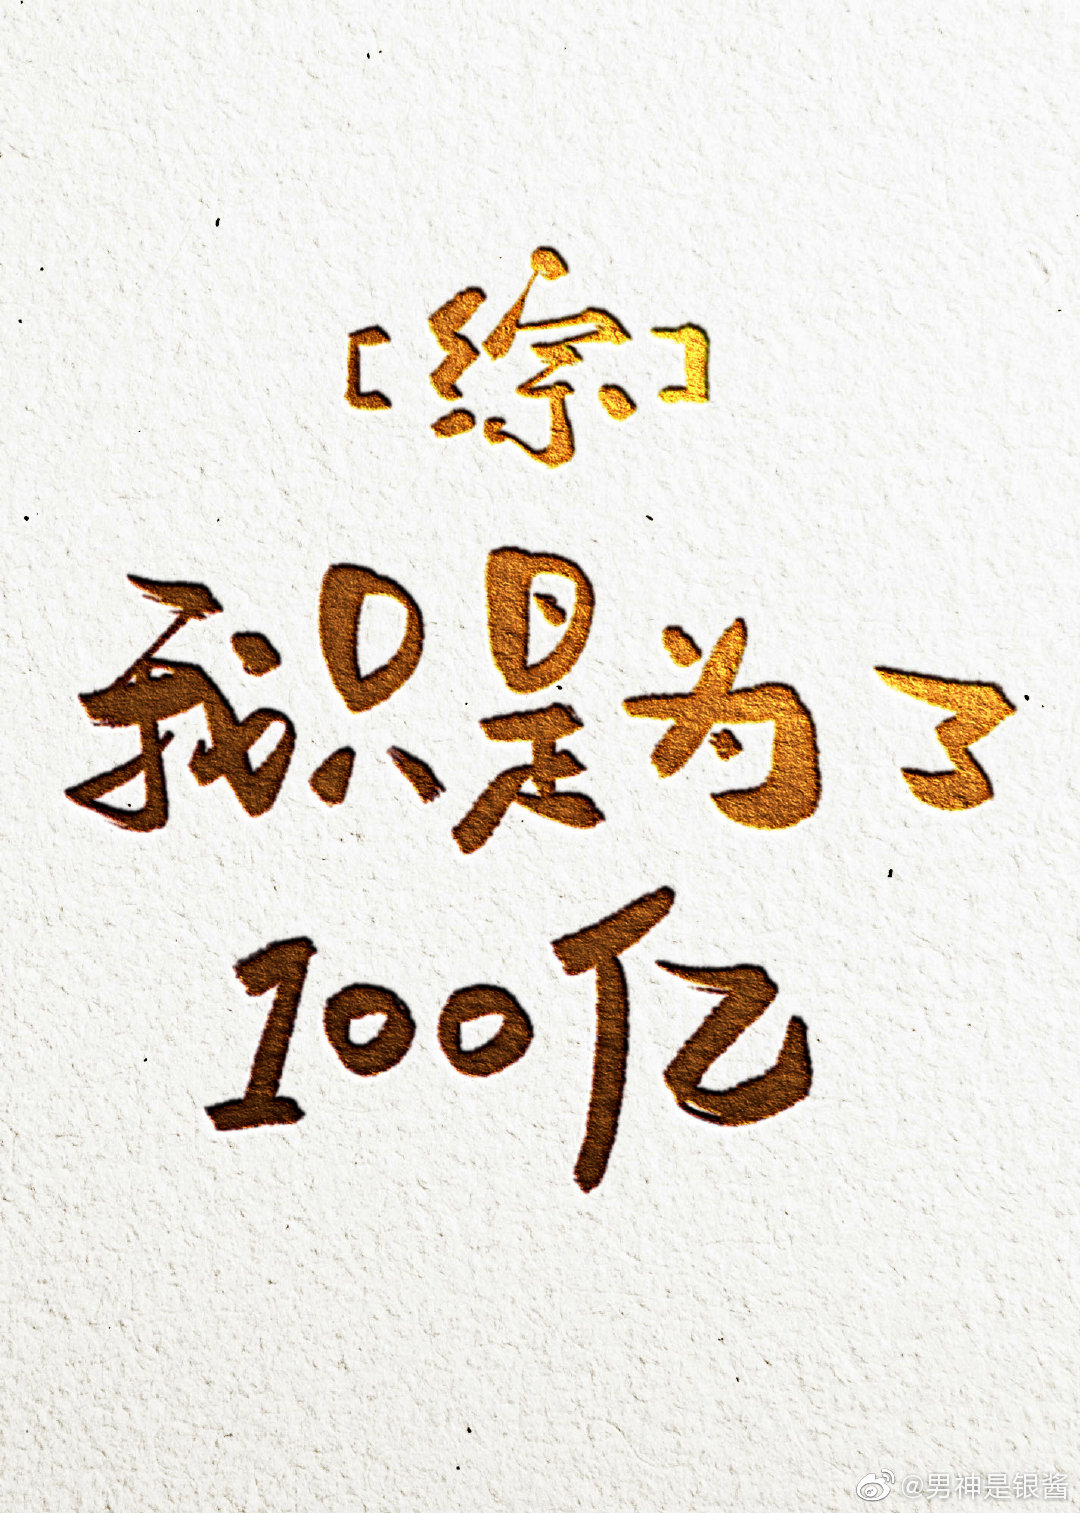 [综]
我只是为了
100亿
@男神是银酱